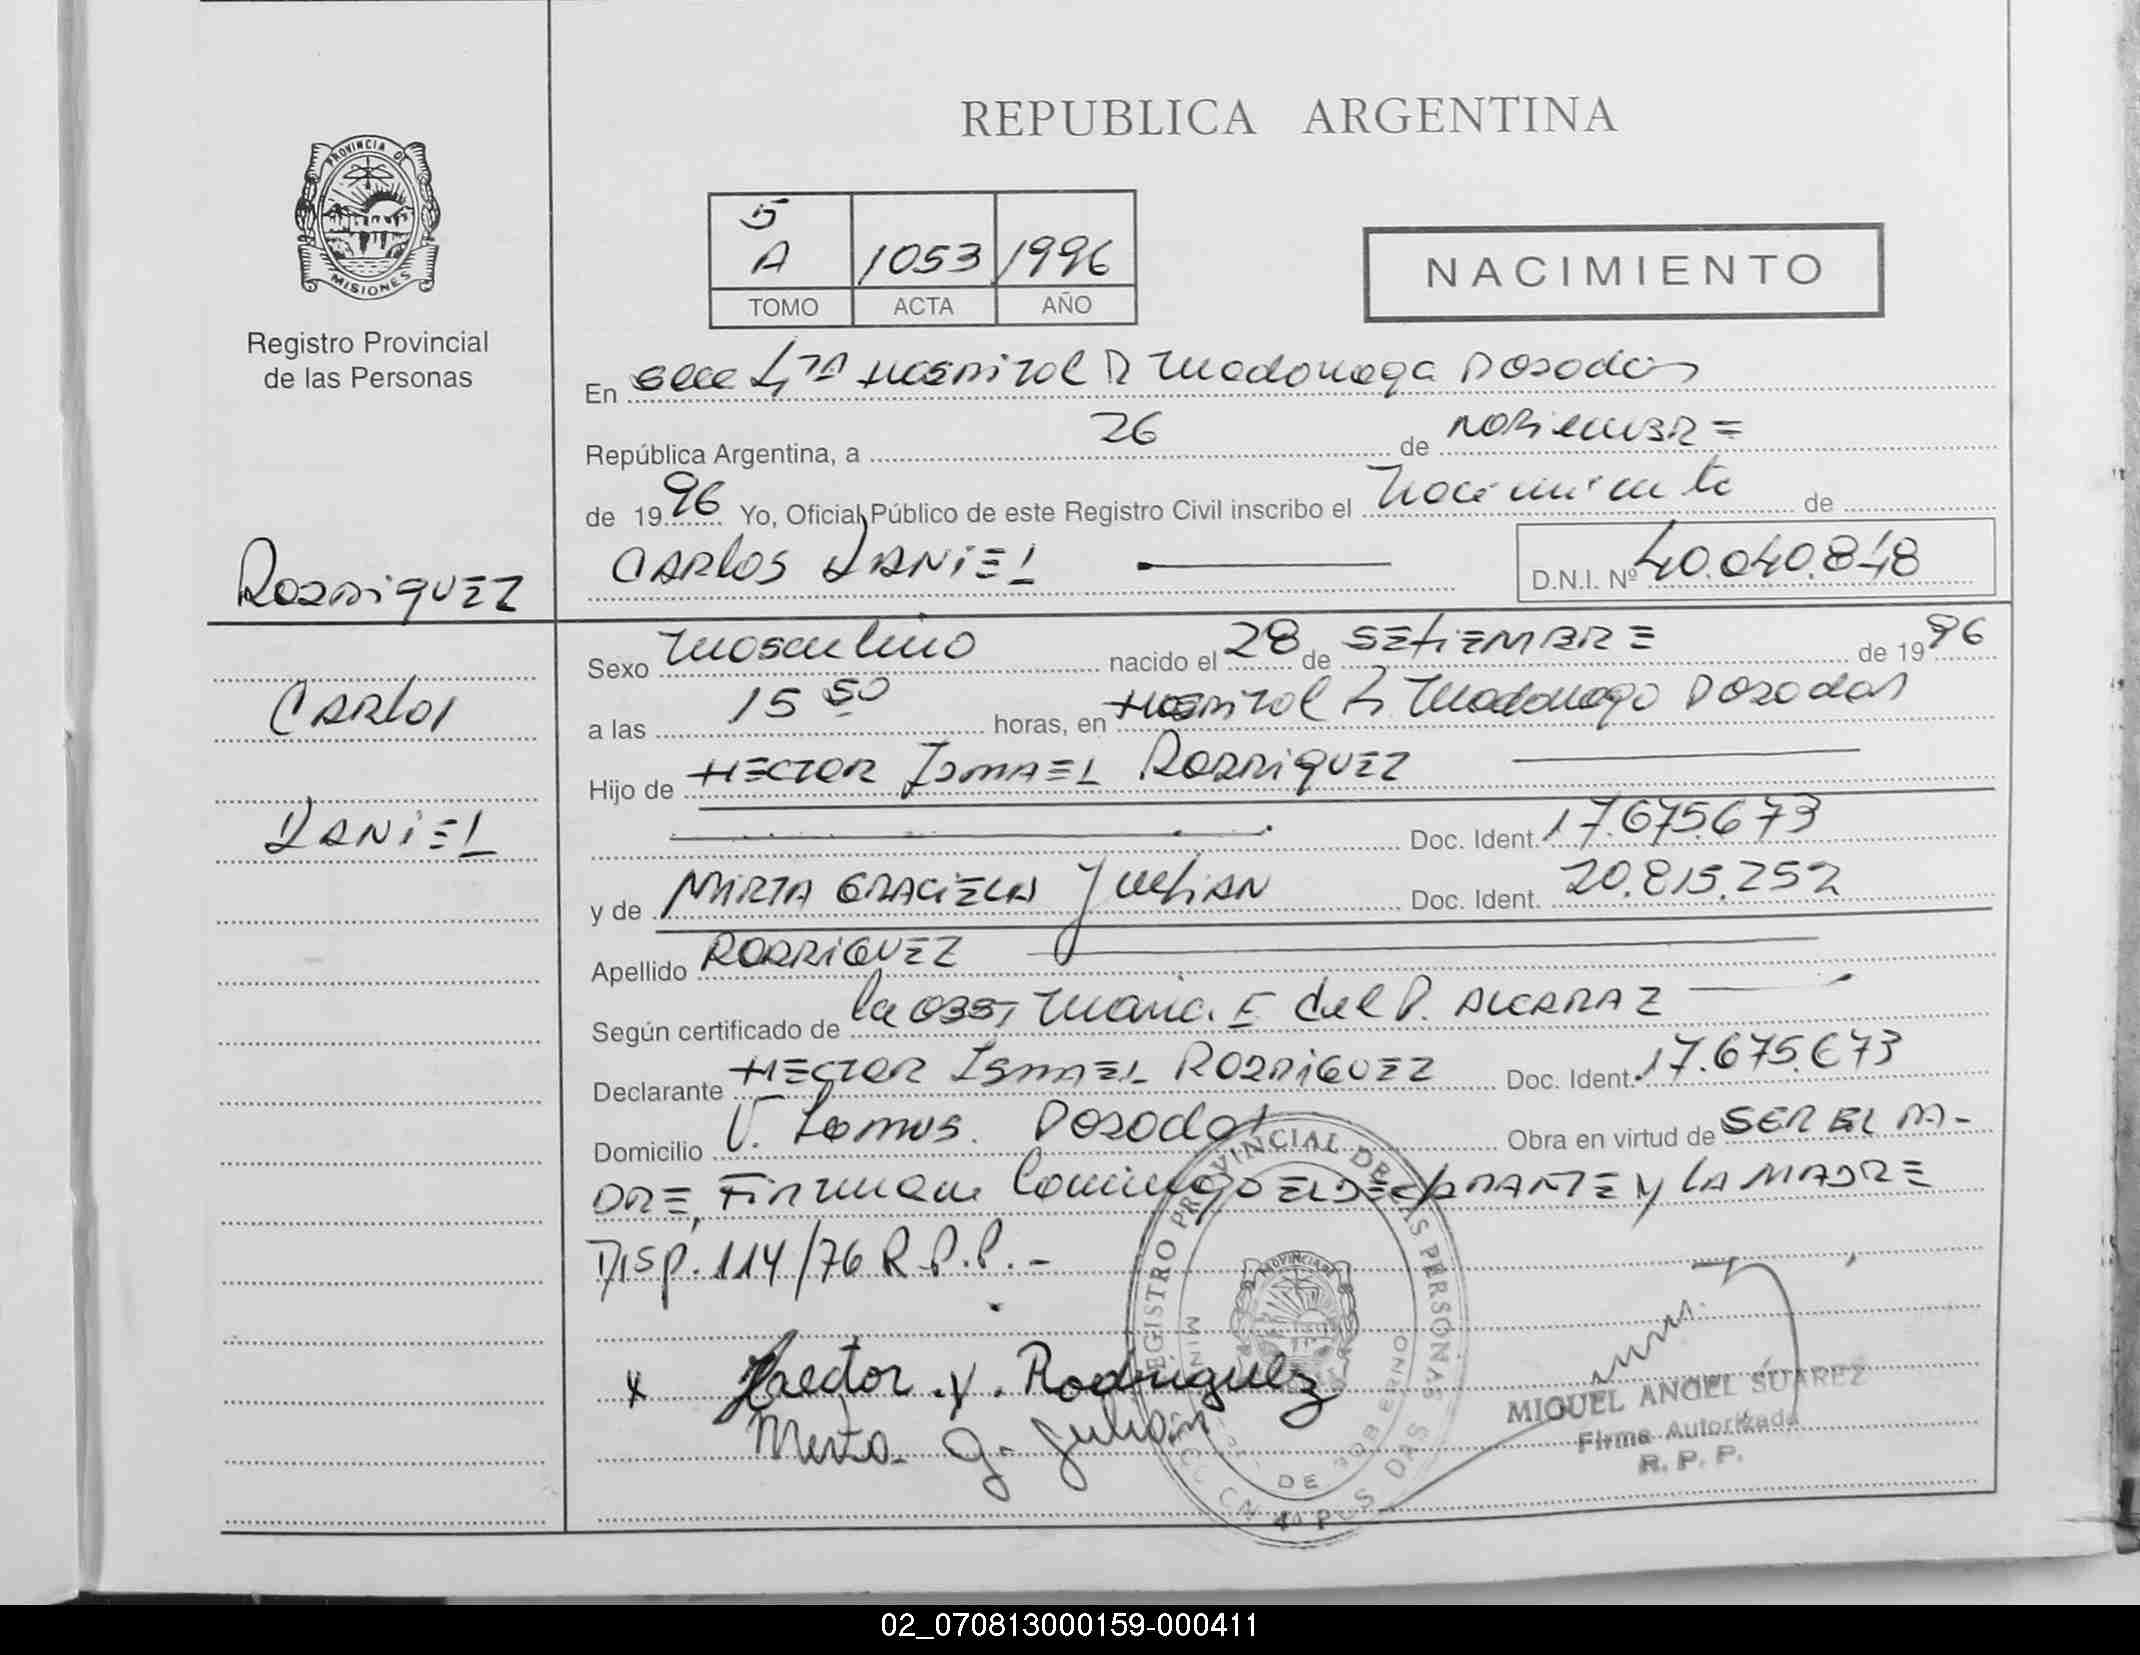 REPUBLICA ARGENTINA
PROVINCIA DE
MISIONES
Registro Provincial
de las Personas
5
A 1053 1996
TOMO ACTA AÑO
NACIMIENTO
En Secc 4ta Hospital R Madariaga Posadas
República Argentina, a 26 de NOBIEMBRE
de 1996 Yo, Oficial Público de este Registro Civil inscribo el Nacimiento de
CARLOS DANIEL
D.N.I. Nº 40.040.848
RODRIGUEZ
CARLOS
DANIEL
Sexo Masculino nacido el 28 de SETIEMBRE de 1996
a las 15 50 horas, en Hospital R Madariaga Posadas
Hijo de HECTOR ISMAEL RODRIGUEZ
Doc. Ident. 17.675.673
y de MIRTA GRACIELA Julian Doc. Ident. 20.815.252
Apellido RODRIGUEZ
Según certificado de la OBST Maria. E del P. ALCARAZ
Declarante HECTOR ISMAEL RODRIGUEZ Doc. Ident. 17.675.673
Domicilio V. Lomas. Posadas Obra en virtud de SER EL PA-
DRE, Firman Conmigo EL DECLARANTE Y LA MADRE
DISP. 114/76 R.P.P.-
REGISTRO PROVINCIAL DE LAS PERSONAS
DE GOBIERNO
POSADAS
x Haector .y. Rodriguez
Mirta. g. Julian
MIGUEL ANGEL SUAREZ
Firma Autorizada
R. P. P.
02_070813000159-000411